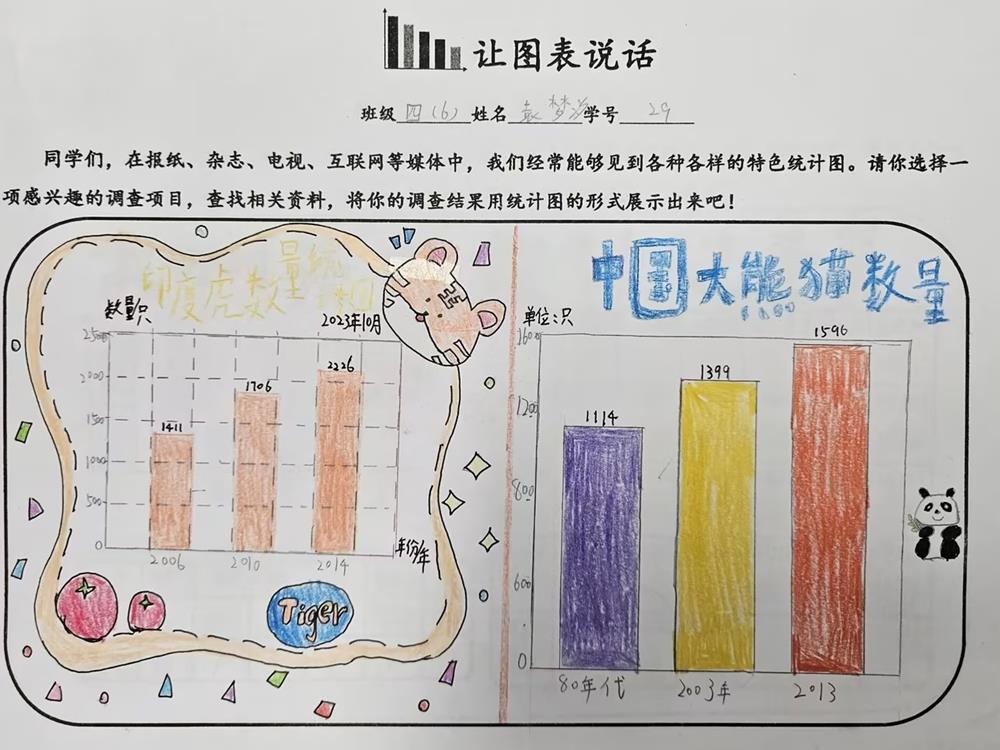 让图表说话
班级 四(6) 姓名 袁梦 学号 29
同学们，在报纸、杂志、电视、互联网等媒体中，我们经常能够见到各种各样的特色统计图。请你选择一
项感兴趣的调查项目，查找相关资料，将你的调查结果用统计图的形式展示出来吧！
印度虎数量统计图
数量/只
2023年10月
2500
2000
1500
1000
500
0
1411
1706
2226
2006 2010 2014
年份/年
Tiger
中国大能猫数量
单位:只
1600
1200
800
600
0
1114
1399
1596
80年代 2003年 2013